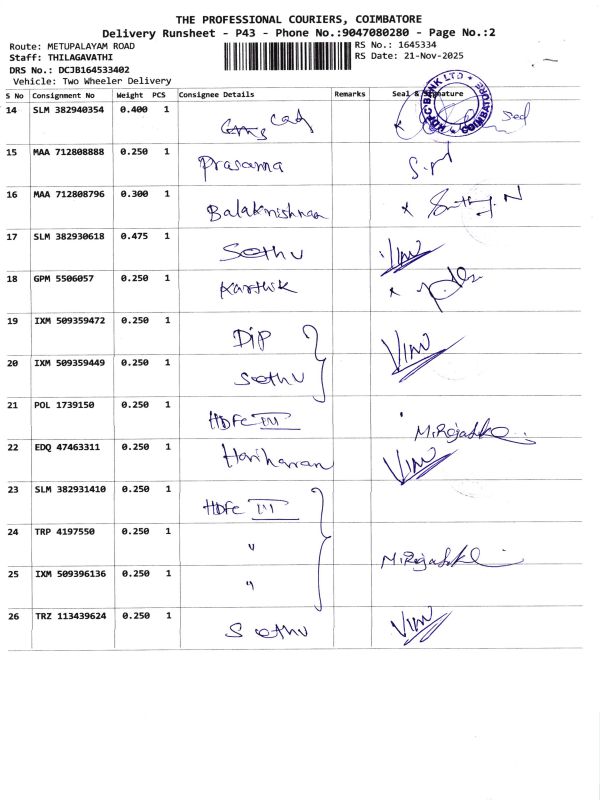 THE PROFESSIONAL COURIERS, COIMBATORE
Delivery Runsheet - P43 - Phone No.:9047080280 - Page No.:2
Route: METUPALAYAM ROAD
RS No.: 1645334
Staff: THILAGAVATHI
RS Date: 21-Nov-2025
DRS No.: DCJB164533402
Vehicle: Two Wheeler Delivery
S No Consignment No Weight PCS Consignee Details Remarks Seal & Signature
HDFC BANK LTD * COIMBATORE *
14 SLM 382940354 0.400 1
15 MAA 712808888 0.250 1 Prasanna
16 MAA 712808796 0.300 1 Balakrishnan
17 SLM 382930618 0.475 1 Sethu
18 GPM 5506057 0.250 1 Karthik
19 IXM 509359472 0.250 1 DIP
20 IXM 509359449 0.250 1 Sethu
21 POL 1739150 0.250 1 HDFC III
22 EDQ 47463311 0.250 1 Hariharan
23 SLM 382931410 0.250 1 HDFC III
24 TRP 4197550 0.250 1 "
25 IXM 509396136 0.250 1 "
26 TRZ 113439624 0.250 1 Sethu